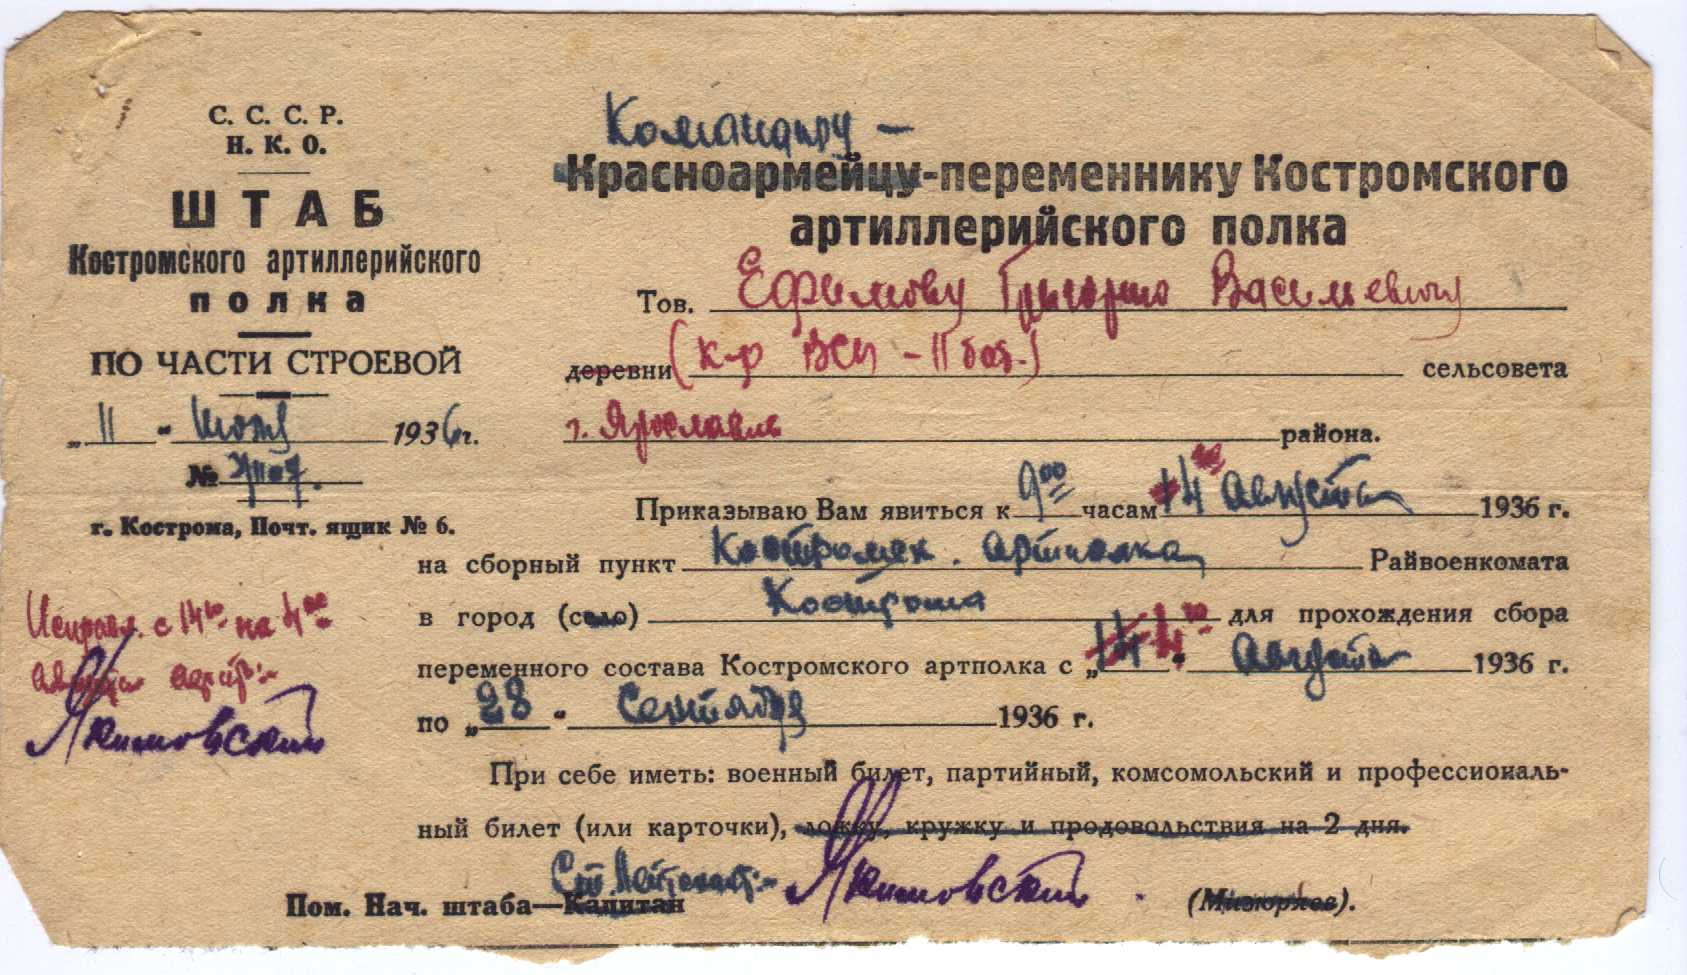 С. С. С. Р.
Н. К. О.
ШТАБ
Костромского артиллерийского
полка
ПО ЧАСТИ СТРОЕВОЙ
„ 11 “ июля 1936 г.
№
г. Кострома, Почт. ящик № 6.
Исправл. с 14го на 4ое
августа
Якимовский
Командиру –
Красноармейцу-переменнику Костромского
артиллерийского полка
Тов. Ефимову Григорию Васильевичу
деревни (к-р – 11 бат.) сельсовета
г. Ярославль района.
Приказываю Вам явиться к 9 00 часам 14 августа 1936 г.
на сборный пункт Костромск. артполка Райвоенкомата
в город (село) Кострома для прохождения сбора
переменного состава Костромского артполка с „ 14 4 “ августа 1936 г.
по „ 28 “ Сентября 1936 г.
При себе иметь: военный билет, партийный, комсомольский и профессиональ-
ный билет (или карточки), ложку, кружку и продовольствия на 2 дня.
Ст. Лейтенант
Пом. Нач. штаба—Капитан Якимовский (Мизюряев).